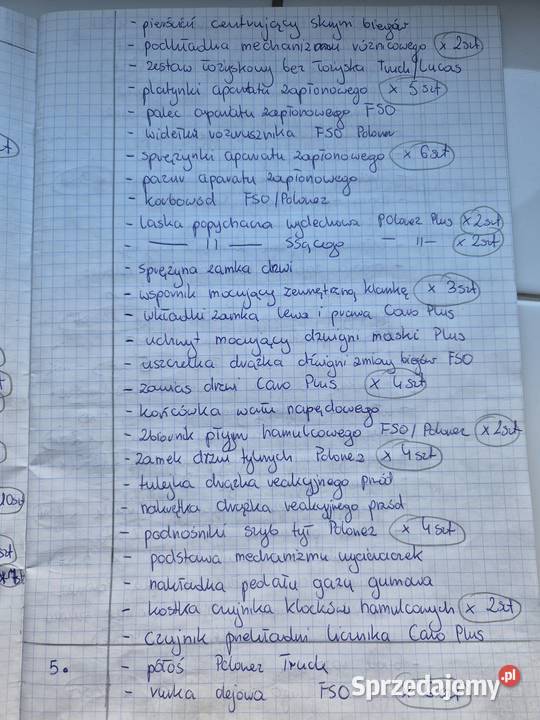 - pierścień centrujący skrzyni biegów
- podkładka mechanizmu różnicowego x 2szt
- zestaw łożyskowy bez łożyska Truck/Lucas
- platynki aparatu zapłonowego x 5szt
- palec aparatu zapłonowego FSO
- widełka rozrusznika FSO Polonez
- sprężynki aparatu zapłonowego x 6szt
- pazur aparatu zapłonowego
- korbowód FSO/Polonez
- laska popychacza wydechowa Polonez Plus x 2szt
- —— 11 —— ssącego — 11 — x 2szt
- sprężyna zamka drzwi
- wspornik mocujący zewnętrzną klamkę x 3szt
- wkładki zamka lewa i prawa Caro Plus
- uchwyt mocujący dźwigni maski Plus
- uszczelka drążka dźwigni zmiany biegów FSO
- zawias drzwi Caro Plus x 4szt
- końcówka wału napędowego
- zbiornik płynu hamulcowego FSO/Polonez x 2szt
- zamek drzwi tylnych Polonez x 4szt
- tulejka drążka reakcyjnego przód
- nakrętka drążka reakcyjnego przód
- podnośniki szyb tył Polonez x 4szt
- podstawa mechanizmu wycieraczek
- nakładka pedału gazu gumowa
- kostka czujnika klocków hamulcowych x 2szt
- czujnik przekładni licznika Caro Plus
5. - półoś Polonez Truck
- rurka olejowa FSO
10szt
Sprzedajemy.pl